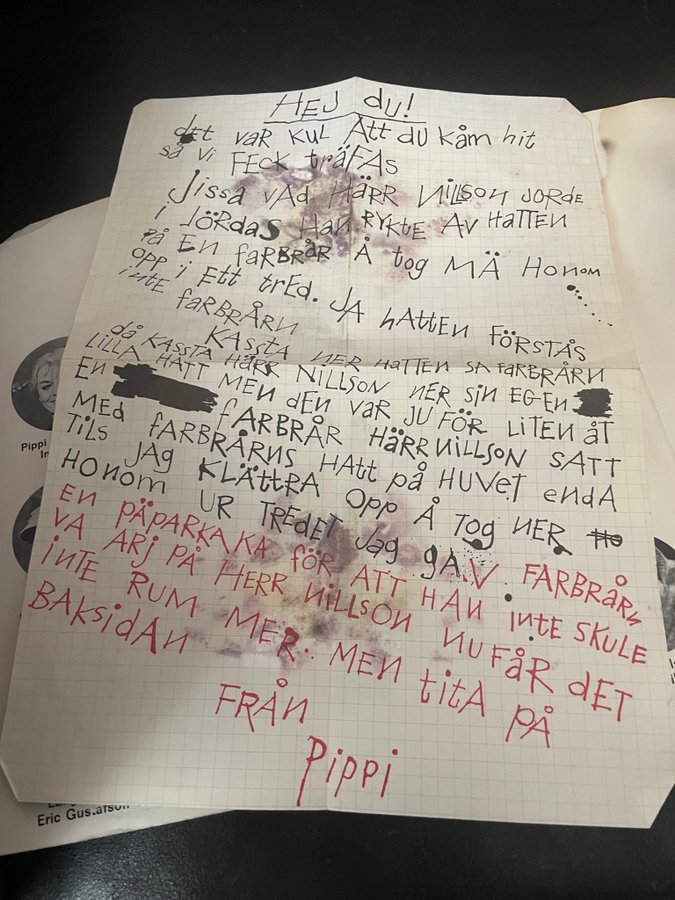 HEJ du!
dEt VAR KUL Att du kåm hit
så vi FECK tRÄFAS
Jissa VAd HÄRR NILLSON JORDE
i JÖRDAS HAN RYKTE AV HAttEN
på EN FARBRÅR Å tog MÄ HONOM
opp i Ett tREd. JA hAttEN FÖRStÅS
iNtE FARBRÅRN
KASStA NER HAttEN SA FARBRÅRN
då KASStA HÄRR NILLSON NER siN EGEN
LiLLA HAtt MEN dEN VAR JU FÖR LitEN åt
EN FARBRÅR HÄRR NILLSON SAtt
MEd FARBRÅRNS HAtt på HUVEt ENdA
tiLS JAg KLÄttRA opp Å tog NER Ho
HONOM UR tREdEt JAg gAV FARBRÅRN
EN PÄPARKAKA FÖR Att HAN iNtE SKULE
VA ARJ PÅ HERR NILLSON NU FÅR dEt
iNtE RUM MER. MEN titA PÅ
BAKSidAN
FRÅN
Pippi
Pippi
Eric Gustafson